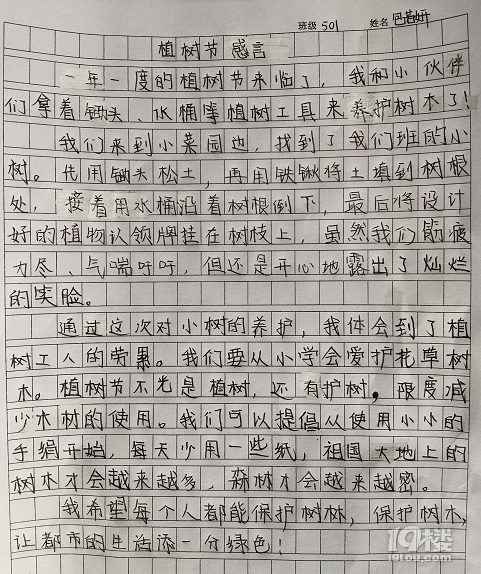 班级 501 姓名
植树节感言
一年一度的植树节来临了，我和小伙伴
们拿着锄头、水桶等植树工具来养护树木了！
我们来到小菜园边，找到了我们班的小
树。先用锄头松土，再用铁锹将土填到树根
处，接着用水桶沿着树根倒下，最后将设计
好的植物认领牌挂在树枝上，虽然我们筋疲
力尽、气喘吁吁，但还是开心地露出了灿烂
的笑脸。
通过这次对小树的养护，我体会到了植
树工人的劳累。我们要从小学会爱护花草树
木。植树节不光是植树，还有护树，限度减
少木材的使用。我们可以提倡从使用小小的
手绢开始，每天少用一些纸，祖国大地上的
树木才会越来越多，森林才会越来越密。
我希望每个人都能保护树林，保护树木，
让都市的生活添一分绿色！
19楼
19lou.com